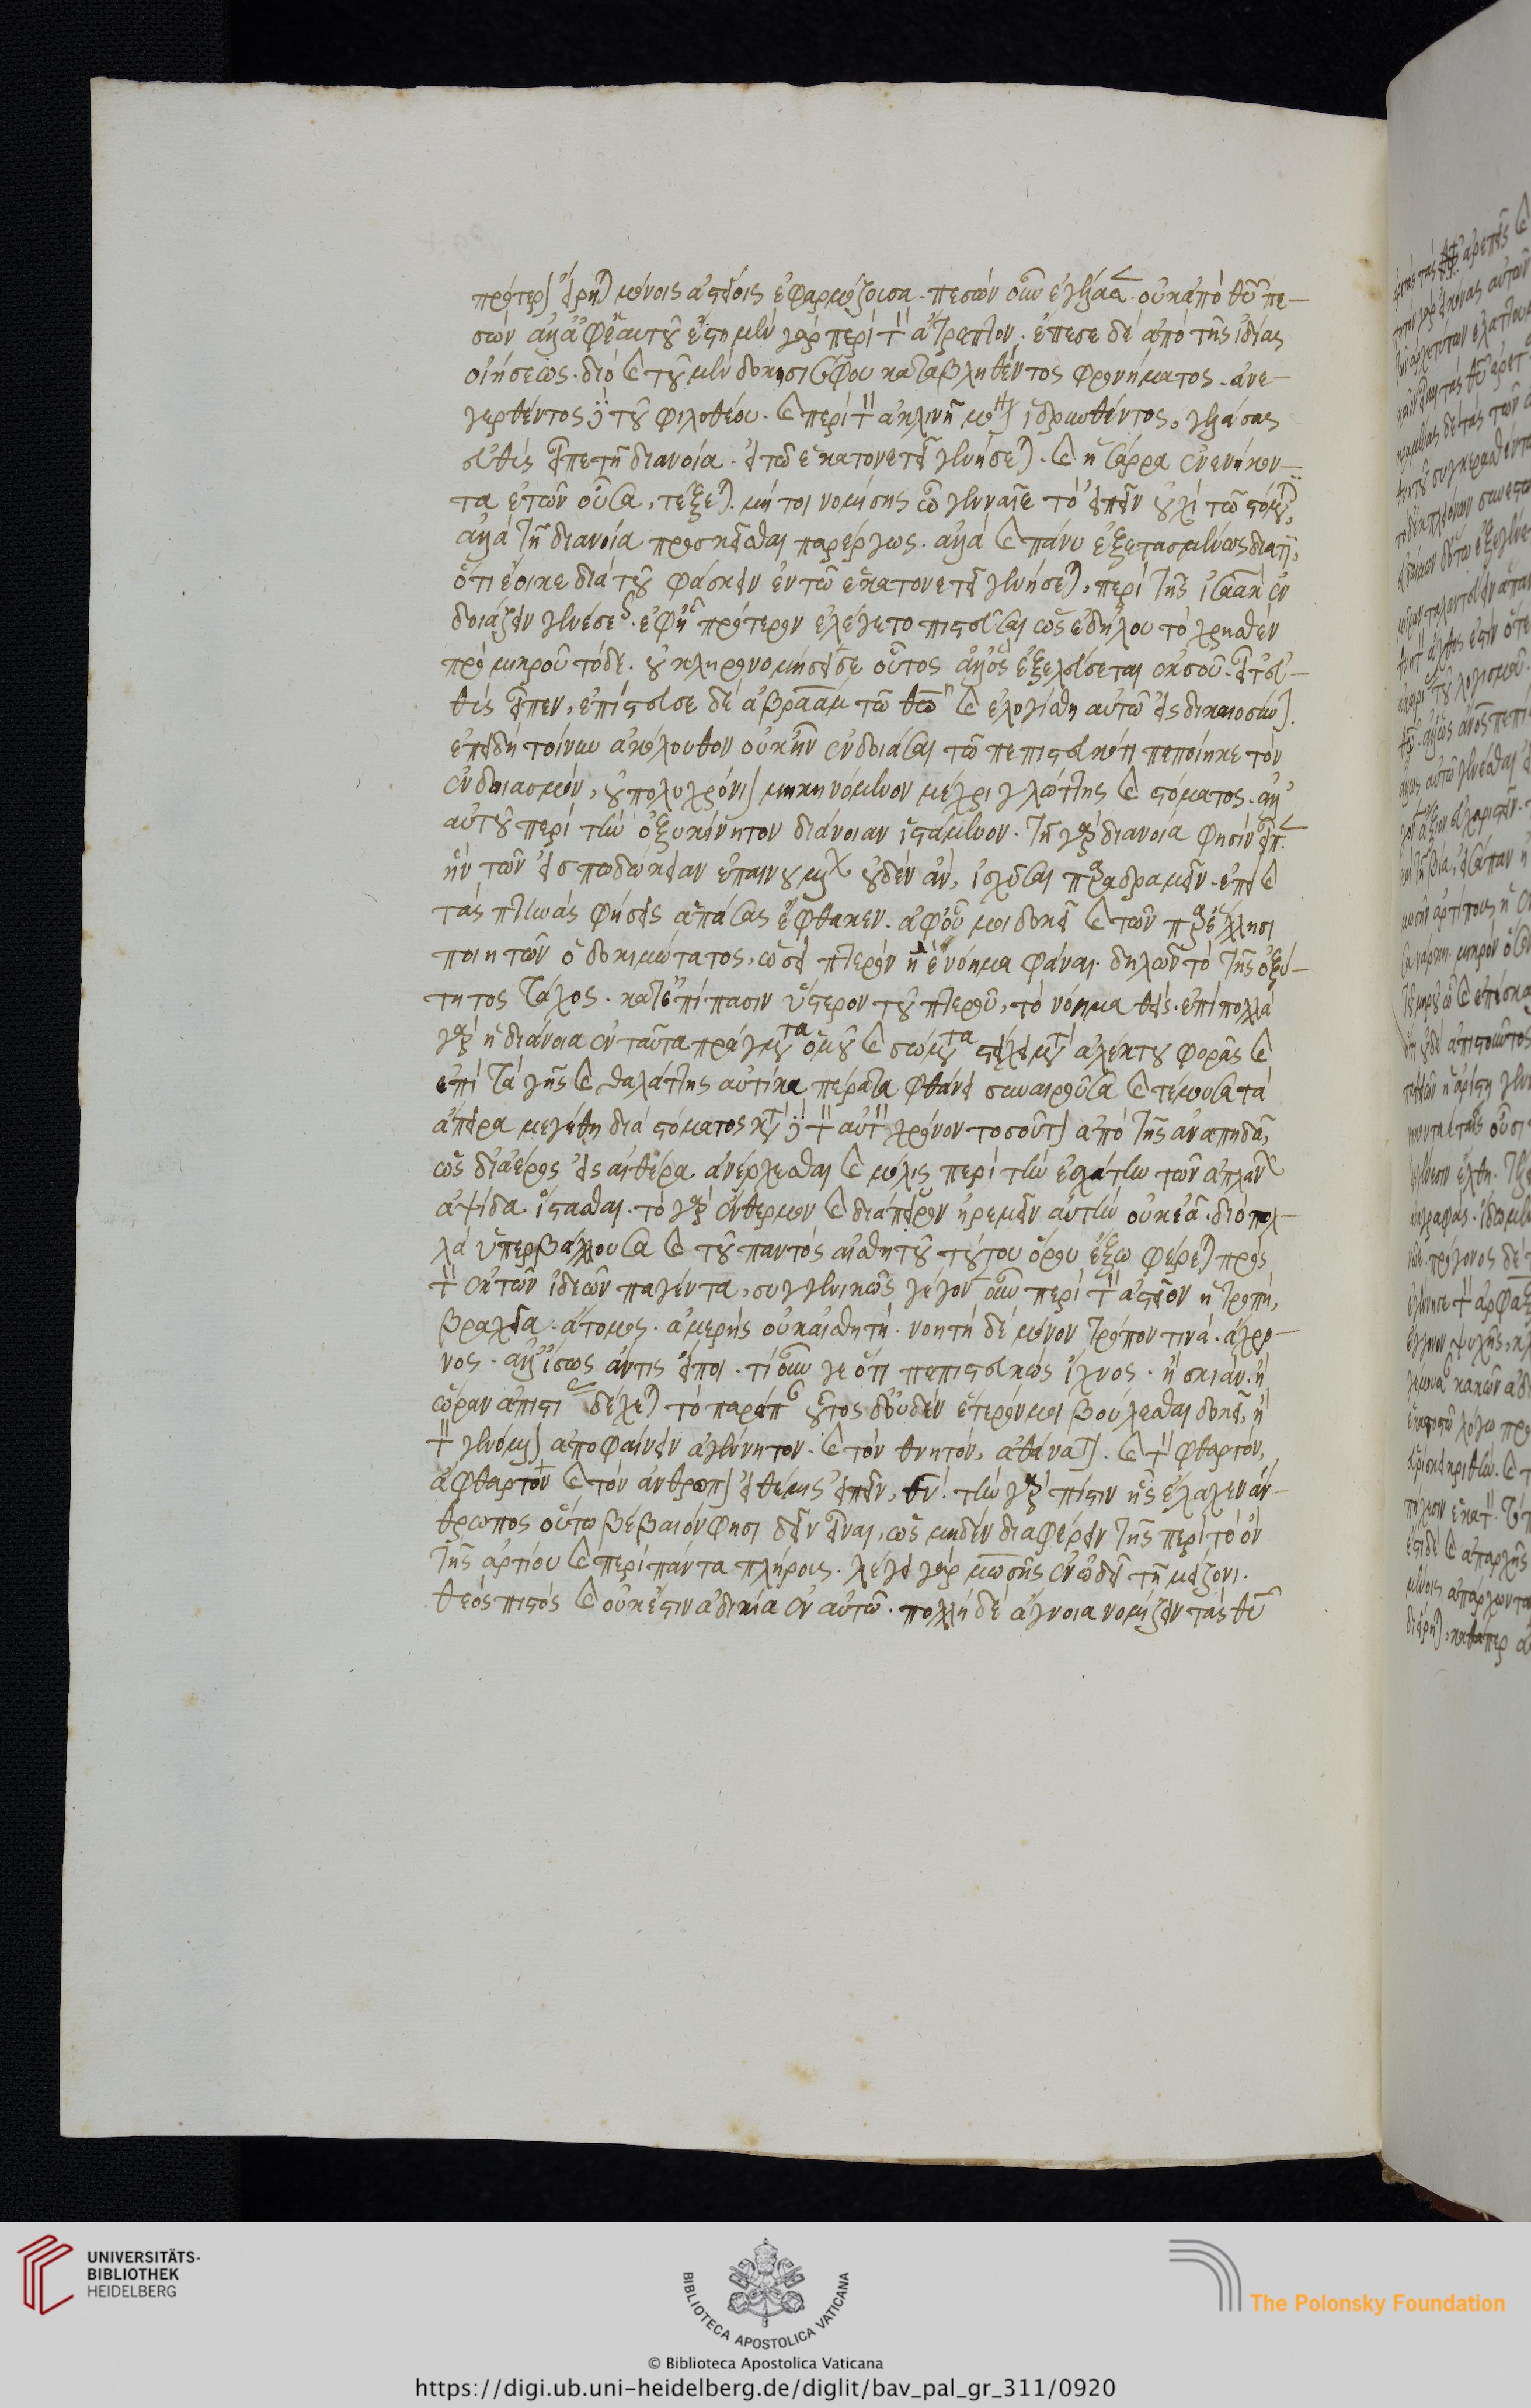 πρότερον εἴρηται μόνοις ἀστείοις ἐφαρμόζουσα. πεσὼν οὖν ἐγέλασεν. οὐκ ἀπὸ θεοῦ πε-
σὼν ἀλλ' ἀφ' ἑαυτοῦ ἔστη μὲν γὰρ περὶ τὸν ἄτρεπτον. ἔπεσε δὲ ἀπὸ τῆς ἰδίας
οἰήσεως. διὸ καὶ τοῦ μὲν δοκησισόφου καταβληθέντος φρονήματος. ἀνε-
γερθέντος δὲ τοῦ φιλοθέου. καὶ περὶ τὸν ἀκλινῆ μόνον ἱδρυθέντος, γελάσας
εὐθὺς εἶπε τῇ διανοίᾳ. εἰ τῷ ἑκατονταετεῖ γενήσεται. καὶ ἡ σάρρα ἐνενήκον-
τα ἐτῶν οὖσα, τέξεται. μή τοι νομίσῃς ὦ γενναῖε τὸ εἰπεῖν οὐχὶ τῷ στόματι,
ἀλλὰ τῇ διανοίᾳ προσκεῖσθαι παρέργως. ἀλλὰ καὶ πάνυ ἐξητασμένως διατί,
ὅτι ἔοικε διὰ τοῦ φάσκειν ἐν τῷ ἑκατονταετεῖ γενήσεται, περὶ τῆς ἰσαὰκ ἐν
δοιάζειν γενέσεως. ἐφ' ᾗ πρότερον ἐλέγετο πιστεῦσαι ὡς ἐδήλου τὸ χρησθὲν
πρὸ μικροῦ τόδε. οὐ κληρονομήσει σε οὗτος ἀλλ' ὃς ἐξελεύσεται ἐκ σοῦ. εἶτ' εὐ-
θὺς εἶπεν, ἐπίστευσε δὲ ἀβραὰμ τῷ θεῷ καὶ ἐλογίσθη αὐτῷ εἰς δικαιοσύνην.
ἐπειδὴ τοίνυν ἀκόλουθον οὐκ ἦν ἐνδοιάσαι τῷ πεπιστευκότι πεποίηκε τὸν
ἐνδοιασμὸν, οὐ πολυχρόνιον μηκυνόμενον μέχρι γλώττης καὶ στόματος. ἀλλ'
αὐτοῦ περὶ τὴν ὀξυκίνητον διάνοιαν ἱστάμενον. τῇ γὰρ διανοίᾳ φησὶν εἶπεν.
ἣν τῶν εἰς ποδώκειαν ἐπαινουμένων οὐδὲν ἂν, ἰσχύσαι παραδραμεῖν. ἐπεὶ καὶ
τὰς πτηνὰς φύσεις ἁπάσας ἔφθακεν. ἀφ' οὗ μοι δοκεῖ καὶ τῶν παρ' ἕλλησι
ποιητῶν ὁ δοκιμώτατος, ὡσεὶ πτερὸν ἠὲ νόημα φάναι. δηλῶν τὸ τῆς ὀξύ-
τητος τάχος. κατ' ἐπίτασιν ὕστερον τοῦ πτεροῦ, τὸ νόημα θείς. ἐπὶ πολλὰ
γὰρ ἡ διάνοια ἐν ταυτῷ πράγματα ὁμοῦ καὶ σώματα στείχει μετὰ ἀλέκτου φορᾶς καὶ
ἐπὶ τὰ γῆς καὶ θαλάττης αὐτίκα πέρατα φθάνει συναιροῦσα καὶ τέμνουσα τὰ
ἄπειρα μεγέθη διαστήματος κατὰ δὲ τὸν αὐτὸν χρόνον τοσοῦτον ἀπὸ γῆς ἀναπηδᾷ,
ὡς δι' ἀέρος εἰς αἰθέρα ἀνέρχεσθαι καὶ μόλις περὶ τὴν ἐσχάτην τῶν ἀπλανῶν
ἀψῖδα ἵστασθαι. τὸ γὰρ ἔνθερμον καὶ διάπυρον ἠρεμεῖν αὐτὴν οὐκ ἐᾷ. διὸ πολ-
λὰ ὑπερβάλλουσα καὶ τοῦ παντὸς αἰσθητοῦ τούτου ὅρου ἔξω φέρεται πρὸς
τὸν ἐκ τῶν ἰδεῶν παγέντα, συγγενικῶς γέγονεν οὖν περὶ τὸν ἀστεῖον ἡ τροπὴ,
βραχεῖα. ἄτομος. ἀμερὴς οὐκ αἰσθητὴ. νοητὴ δὲ μόνον τρόπον τινὰ. ἄχρο-
νος. ἀλλ' ἴσως ἄν τις εἴποι. τί οὖν γε ὅτι πεπιστευκὼς ἴχνος. ἢ σκιὰν. ἢ
αὔραν ἀπιστίας δέχεται τὸ παράπαν οὗτος δ' οὐδὲν ἕτερόν μοι βούλεσθαι δοκεῖ, ἢ
τὸν γενόμενον ἀποφαίνειν ἀγέννητον. καὶ τὸν θνητὸν, ἀθάνατον. καὶ τὸν φθαρτὸν,
ἄφθαρτον καὶ τὸν ἄνθρωπον εἰ θέμις εἰπεῖν, θεόν. τὴν γὰρ πίστιν ἧς ἔλαχεν ἄν-
θρωπος οὕτω βέβαιόν φησι δεῖν εἶναι, ὡς μηδὲν διαφέρειν τῆς περὶ τὸ ὂν
τῆς ἀρτίου καὶ περὶ πάντα πλήρους. λέγει γὰρ μωσῆς ἐν ᾠδῇ τῇ μείζονι.
θεὸς πιστὸς καὶ οὐκ ἔστιν ἀδικία ἐν αὐτῷ. πολλὴ δὲ ἄγνοια νομίζειν τὰς θεοῦ
UNIVERSITÄTS-
BIBLIOTHEK
HEIDELBERG
BIBLIOTECA APOSTOLICA VATICANA
The Polonsky Foundation
© Biblioteca Apostolica Vaticana
https://digi.ub.uni-heidelberg.de/diglit/bav_pal_gr_311/0920